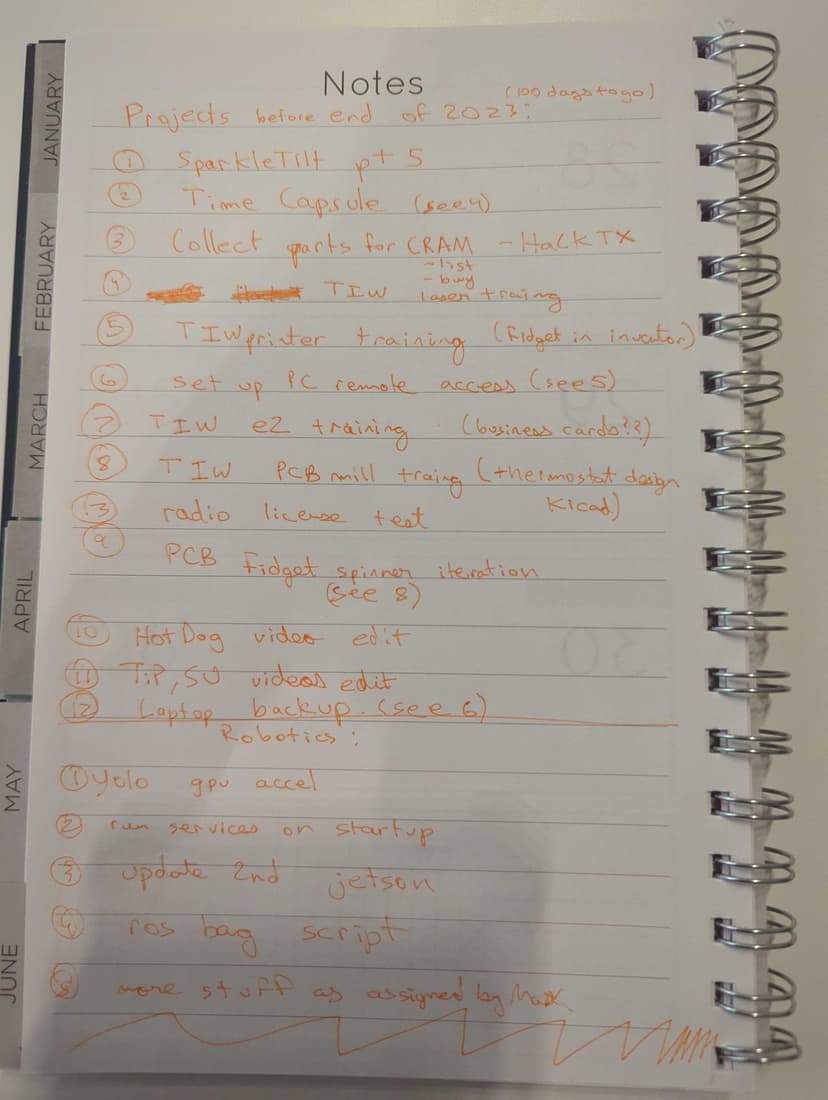 Notes
(100 days to go)
Projects before end of 2023:
① SparkleTilt pt 5
② Time Capsule (see 4)
③ Collect parts for CRAM - HackTX
- list
- buy
④ TIW laser traing
⑤ TIW printer training (fidget in inventor)
⑥ set up PC remote access (see 5)
⑦ TIW e2 training (business cards??)
⑧ TIW PCB mill traing (thermostat design
Kicad)
⑬ radio license test
⑨ PCB Fidget spinner iteration
(see 8)
⑩ HotDog video edit
⑪ TiP, SU videos edit
⑫ Laptop backup. (see 6)
Robotics:
① Yolo gpu accel
② run services on startup
③ update 2nd jetson
④ ros bag script
⑤ more stuff as assigned by
JANUARY
FEBRUARY
MARCH
APRIL
MAY
JUNE